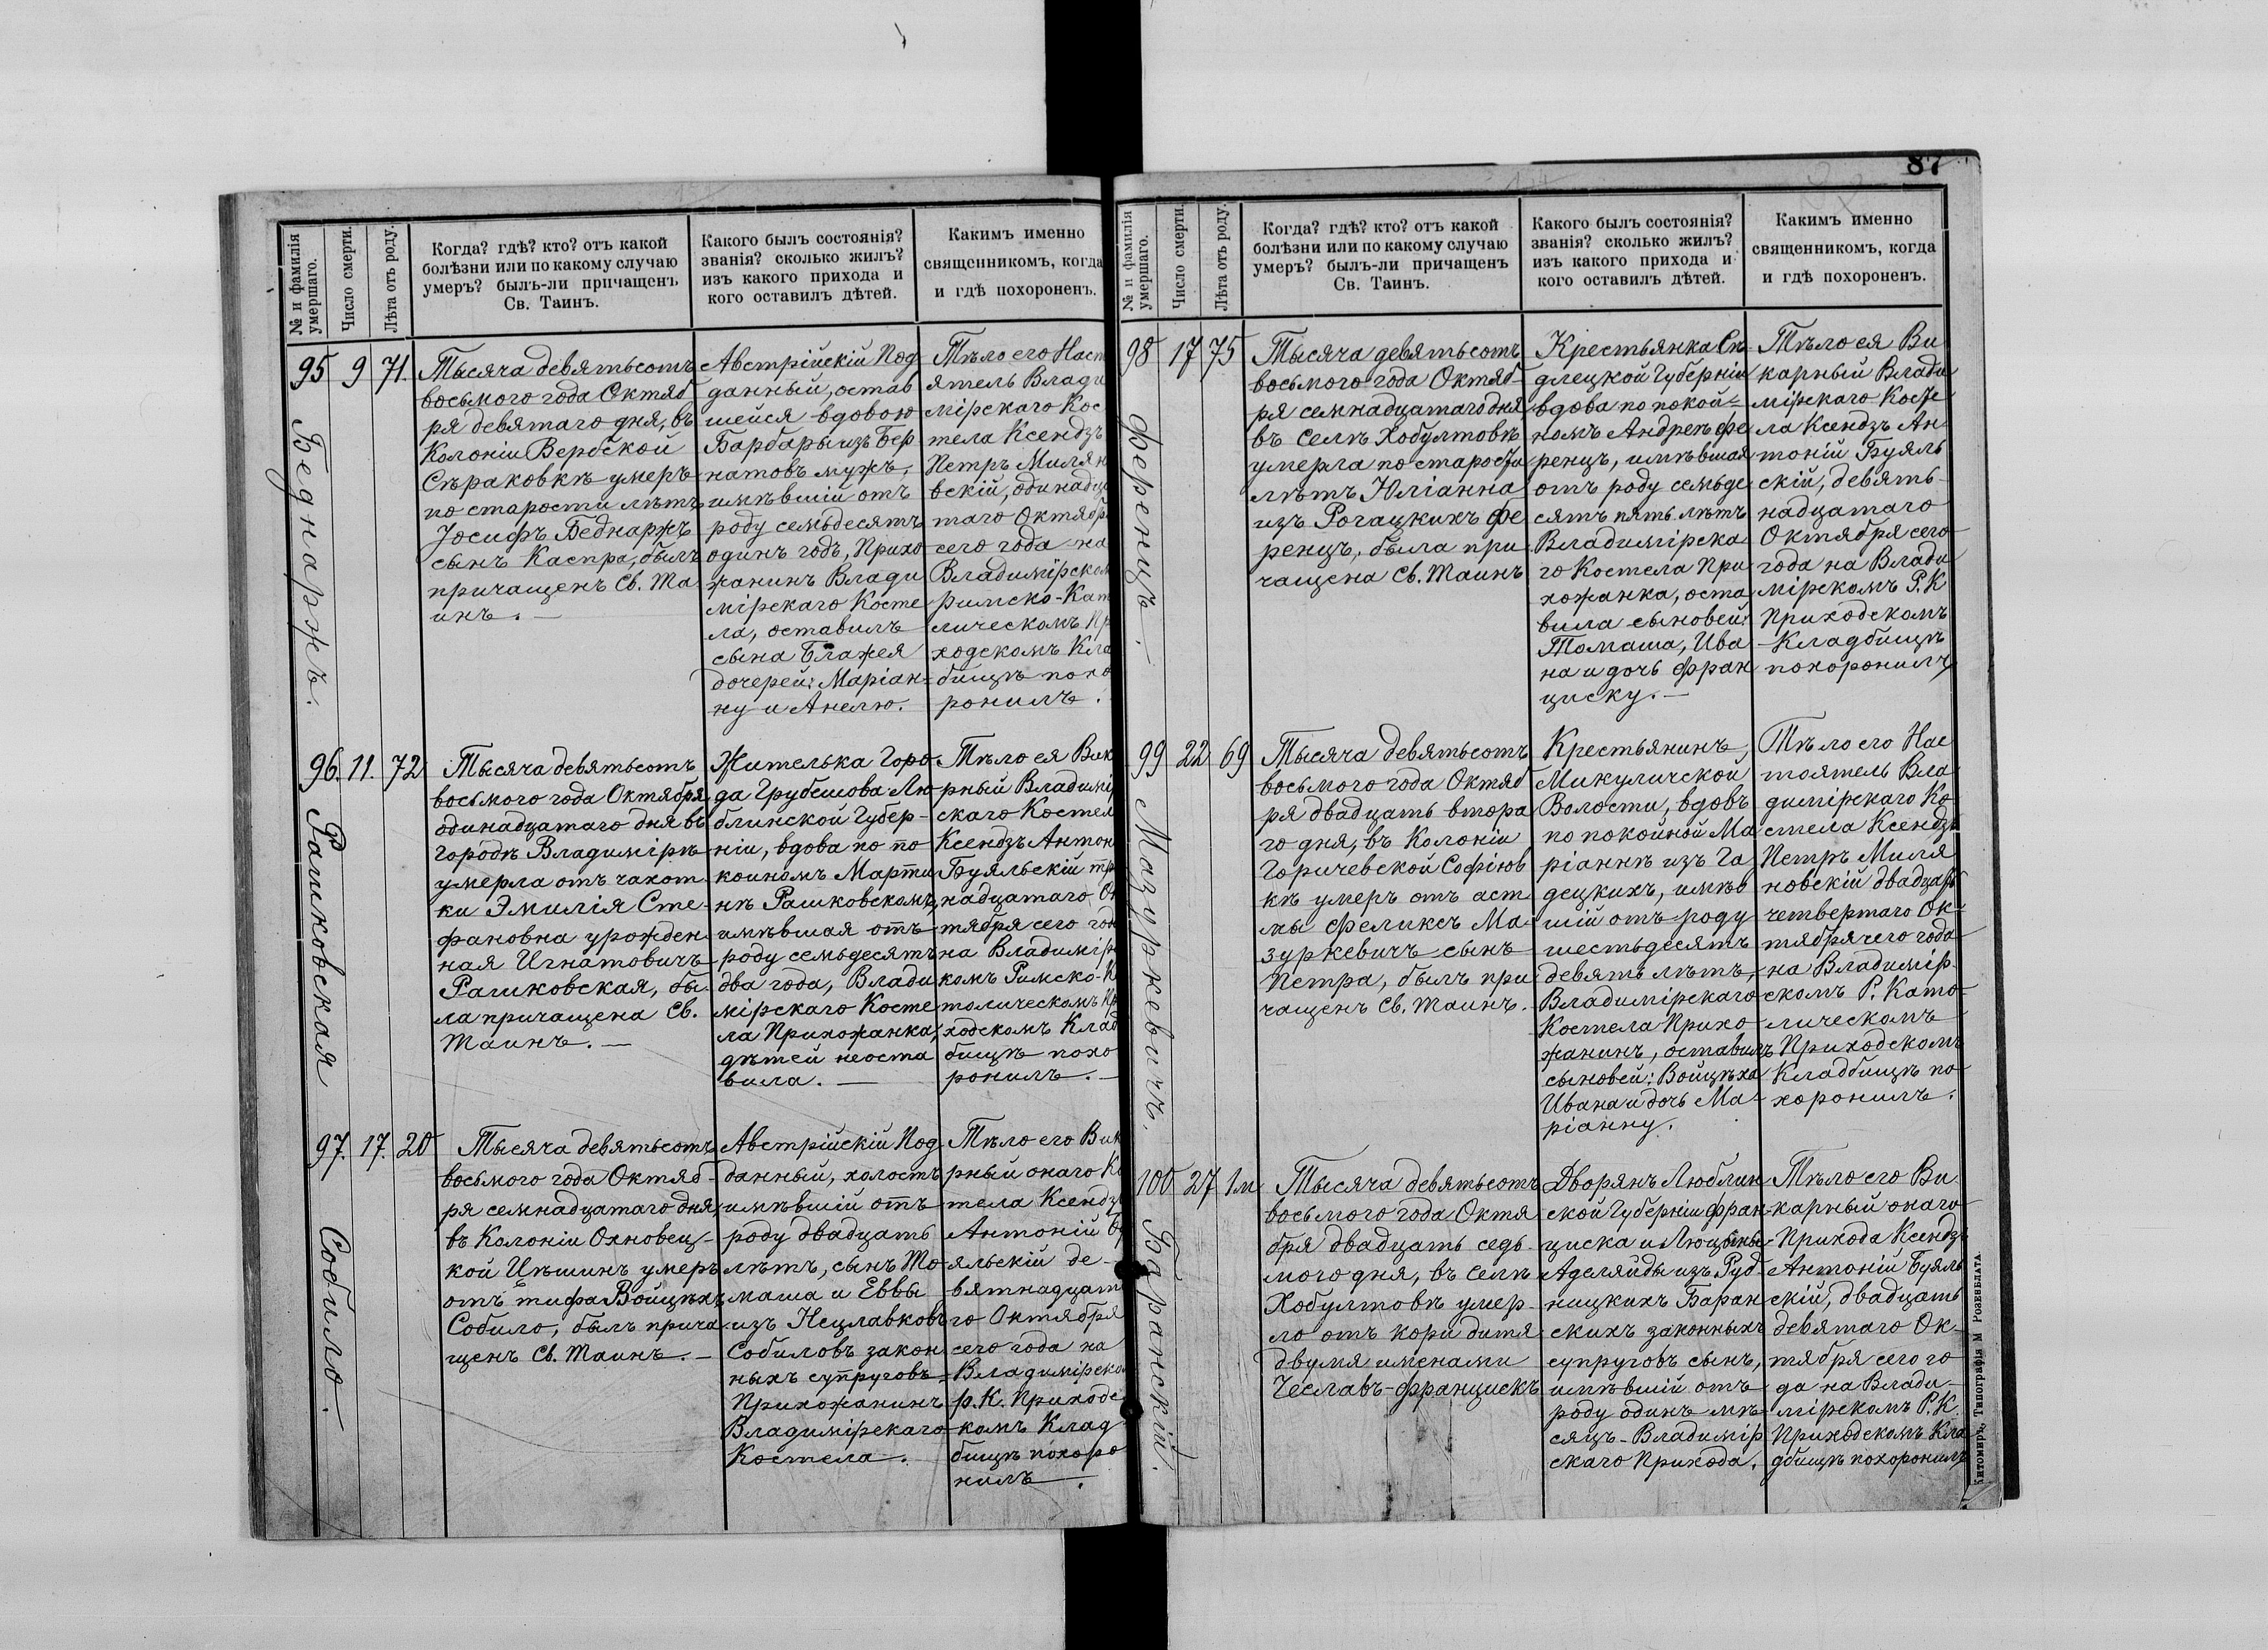 87
№ и фамилія умершаго.
Число смерти.
Лѣта отъ роду.
Когда? гдѣ? кто? отъ какой
болѣзни или по какому случаю
умеръ? былъ-ли причащенъ
Св. Таинъ.
Какого былъ состоянія?
званія? сколько жилъ?
изъ какого прихода и
кого оставилъ дѣтей.
Какимъ именно
священникомъ, когда
и гдѣ похороненъ.
95
Беднаржъ.
9
71.
Тысяча девятьсотъ
восьмого года Октяб
ря девятаго дня, въ
Колоніи Вербской
Сѣраковкѣ умеръ
по старости лѣтъ
Іосифъ Беднаржъ
сынъ Каспра, былъ
причащенъ Св. Та
инъ. —
Австрійскій Под
данный, остав
шейся вдовою
Барбары изъ Бер
натовъ мужъ,
имѣвшій отъ
роду семьдесятъ
одинъ годъ, Прихо
жанинъ Влади
мірскаго Косте
ла, оставилъ
сына Блажея
дочерей: Маріан-
ну и Анелю.
Тѣло его Наст
ятель Влади
мірскаго Кос
тела Ксендзъ
Петръ Милян
вскій, одинадца
таго Октябр
сего года на
Владимірском
римско-Кат
лическомъ Пр
ходскомъ Кла
бищѣ похо
ронилъ.
96.
Рашковская
11.
72
Тысяча девятьсотъ
восьмого года Октября
одинадцатаго дня въ
городѣ Владимірѣ
умерла отъ чахот
ки Эмилія Сте-
фановна урожден
ная Игнатовичъ
Рашковская, бы-
ла причащена Св.
Таинъ. —
Жителька Горо-
да Грубешова Лю
блинской Губер-
ніи, вдова по по
койномъ Марти
нѣ Рашковскомъ,
имѣвшая отъ
роду семьдесятъ
два года, Влади
мірскаго Косте
ла Прихожанка,
дѣтей неоста
вила. —
Тѣло ея Вик
рный Владимі
скаго Костел
Ксендзъ Антон
Буяльскій тр
надцатаго Ок
тября сего год
на Владимір
комъ Римско-К
толическомъ Пр
ходскомъ Клад
бищѣ похо
ронилъ. —
97.
Собило.
17.
20
Тысяча девятьсотъ
восьмого года Октяб-
ря семнадцатаго дня,
въ Колоніи Охновец-
кой Цѣшинъ умеръ
отъ тифа Войцѣхъ
Собило, былъ прича
щенъ Св. Таинъ. —
Австрійскій Под
данный, холостъ
имѣвшій отъ
роду двадцать
лѣтъ, сынъ То
маша и Еввы
изъ Нецлавковъ
Собиловъ закон
ныхъ супруговъ
Прихожанинъ
Владимірскаго
Костела.
Тѣло его Вик
рный онаго Ко
тела Ксендз
Антоній Бу
яльскій де-
вятнадцат
го Октября
сего года на
Владимірско
р.К. Приходс
комъ Клад
бищѣ похоро
нилъ.
№ и фамилія умершаго.
Число смерти.
Лѣта отъ роду.
Когда? гдѣ? кто? отъ какой
болѣзни или по какому случаю
умеръ? былъ-ли причащенъ
Св. Таинъ.
Какого былъ состоянія?
званія? сколько жилъ?
изъ какого прихода и
кого оставилъ дѣтей.
Какимъ именно
священникомъ, когда
и гдѣ похороненъ.
98
Ференцъ.—
17
75
Тысяча девятьсотъ
восьмого года Октяб-
ря семнадцатаго дня
въ селѣ Хобултовѣ
умерла по старости
лѣтъ Юліанна
изъ Рогацкихъ Фе
ренцъ, была при
чащена Св. Таинъ
Крестьянка Сѣ-
длецкой Губерніи
вдова по покой-
номъ Андреѣ Фе
ренцъ, имѣвшая
отъ роду семьде
сятъ пять лѣтъ
Владимірска
го Костела При
хожанка, оста
вила сыновей:
Томаша, Ива
на и дочь Фран
циску. —
Тѣло ея Ви
карный Влади
мірскаго Косте
ла Ксендзъ Ан
тоній Буяль
скій, девять-
надцатаго
Октября сего
года на Влади
мірскомъ Р.К
Приходскомъ
Кладбищѣ
похоронилъ
99
Мазуркевичъ.
22
69
Тысяча девятьсотъ
восьмого года Октяб
ря двадцать втора
го дня, въ Колоніи
Горичевской Софіюв
кѣ умеръ отъ аст
мы Феликсъ Ма-
зуркевичъ сынъ
Петра, былъ при
чащенъ Св. Таинъ.
Крестьянинъ,
Микуличской
Волости, вдовъ
по покойной Ма
ріаннѣ изъ Га
децкихъ, имѣв
шій отъ роду
шестьдесятъ
девять лѣтъ,
Владимірскаго
Костела Прихо
жанинъ, оставилъ
сыновей: Войцѣха
Ивана и дочь Ма-
ріанну.
Тѣло его Нас
тоятель Вла
димірскаго Ко-
стела Ксендзъ
Петръ Миля
новскій двадцать
четвертаго Ок-
тября сего года
на Владимір-
скомъ Р. Като-
лическомъ
Приходскомъ
Кладбищѣ по-
хоронилъ.
100
Баранскій.
27
1м
Тысяча девятьсотъ
восьмого года Октя
бря двадцать седь-
мого дня, въ селѣ
Хобултовѣ умер-
ло отъ кори дитя
двумя именами
Чеславъ-Францискъ
Дворянъ Люблин
ской Губерніи Фран-
циска и Люцыны-
Аделяйды изъ Руд
ницкихъ Баран
скихъ законныхъ
супруговъ сынъ,
имѣвшій отъ
роду одинъ мѣ-
сяцъ - Владимір
скаго Прихода.
Тѣло его Ви
карный онаго
Прихода Ксендзъ
Антоній Буяль
скій, двадцать
девятаго Ок-
тября сего го
да на Влади-
мірскомъ Р.К.
Приходскомъ Кла
дбищѣ похоронилъ
Житомиръ, Типографія М РОЗЕНБЛАТА